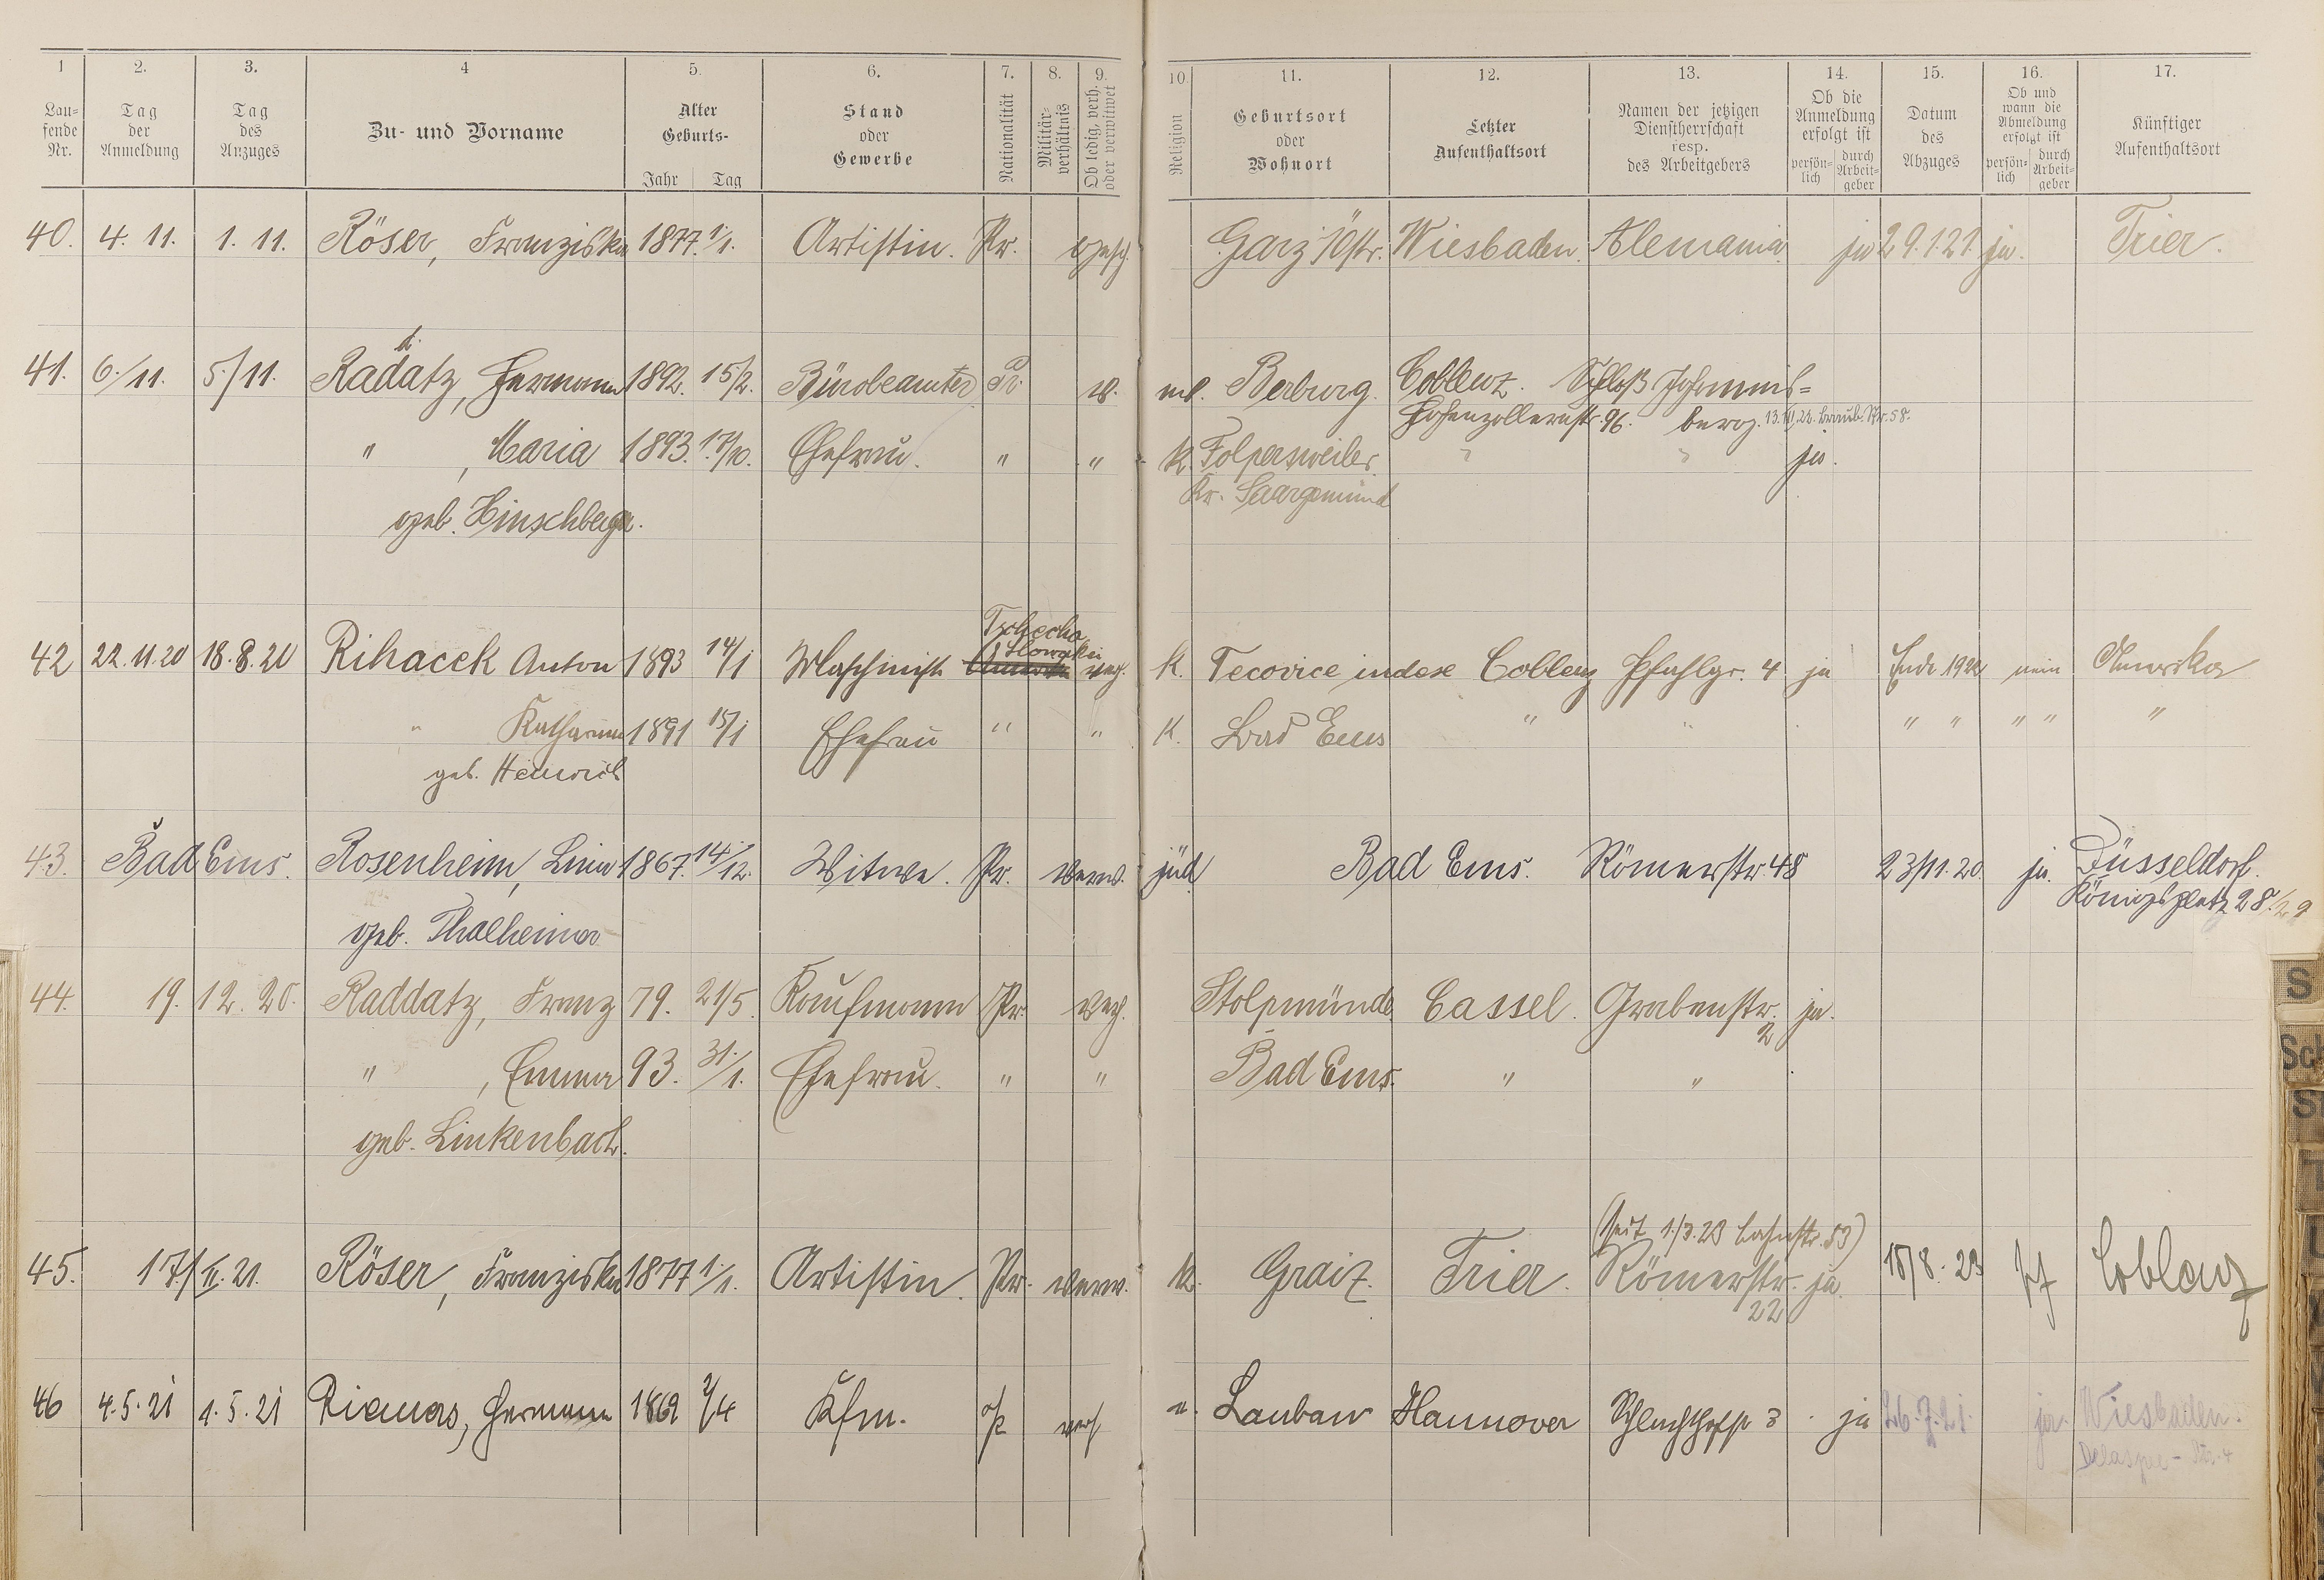 1 2. 3. 4 5. 6. 7. 8. 9. 10. 11. 12. 13. 14. 15. 16. 17.
Laufende Nr. Tag der Anmeldung Tag des Anzuges Zu- und Vorname Alter Geburts- Jahr Tag Stand oder Gewerbe Nationalität Militärverhältnis Ob ledig, verh. oder verwitwet Religion Geburtsort oder Wohnort Letzter Aufenthaltsort Namen der jetzigen Dienstherrschaft resp. des Arbeitgebers Ob die Anmeldung erfolgt ist persönlich durch Arbeitgeber Datum des Abzuges Ob und wann die Abmeldung erfolgt ist persönlich durch Arbeitgeber Künftiger Aufenthaltsort
40. 4. 11. 1. 11. Röser, Franziska 1877. 1/1. Artistin. Pr. gesch. Garz Wiesbaden. Alemania ja 29.1.21. ja. Trier.
41. 6./11. 5./11. Radatz, Hermann 1892. 15/2. Bürobeamter Pr. v. Berburg. Coblenz. Schloß Johannis=
Hohenzollernstr. 96. berg.
" , Maria 1893. 17/10. Ehefrau. " " k. Folpersweiler " " ja.
Kr. Saargemünd
geb. Hinschberger.
Tschecho
Slowakei
42 22.11.20 18.8.20 Rihacek Anton 1893 14/1 Maschinist verh. K. Tecovice Coblenz Pfahlgr. 4 ja Ende 1922 nein Amerika
" Katharina 1891 15/1 Ehefrau " " K. Bad Ems " " " " " " "
geb. Heinrich
43. Bad Ems. Rosenheim, Lina 1867. 14/12. Witwe. Pr. verw. jüd. Bad Ems. Römerstr. 48 23/11.20. ja. Düsseldorf.
Königsplatz 28/29
geb. Thalheimer
44. 19. 12. 20. Raddatz, Franz 79. 21/5. Kaufmann Pr. verh. Stolpmünde Cassel. Grabenstr. ja.
2
" , Emma 93. 31./1. Ehefrau. " " Bad Ems. " "
geb. Linkenbach.
(seit 1./3.23 Bahnstr. 53)
45. 17/II. 21. Röser, Franziska 1877 1/1. Artistin. Pr. verw. k. Graiz. Trier. Römerstr. ja. 15/8. 23 ja Coblenz
22
46 4.5.21 1.5.21 Hermann 1869 2/4 Kfm. Pr verh Lauban Hannover Schlachthofstr 3 ja 26.7.21. ja. Wiesbaden.